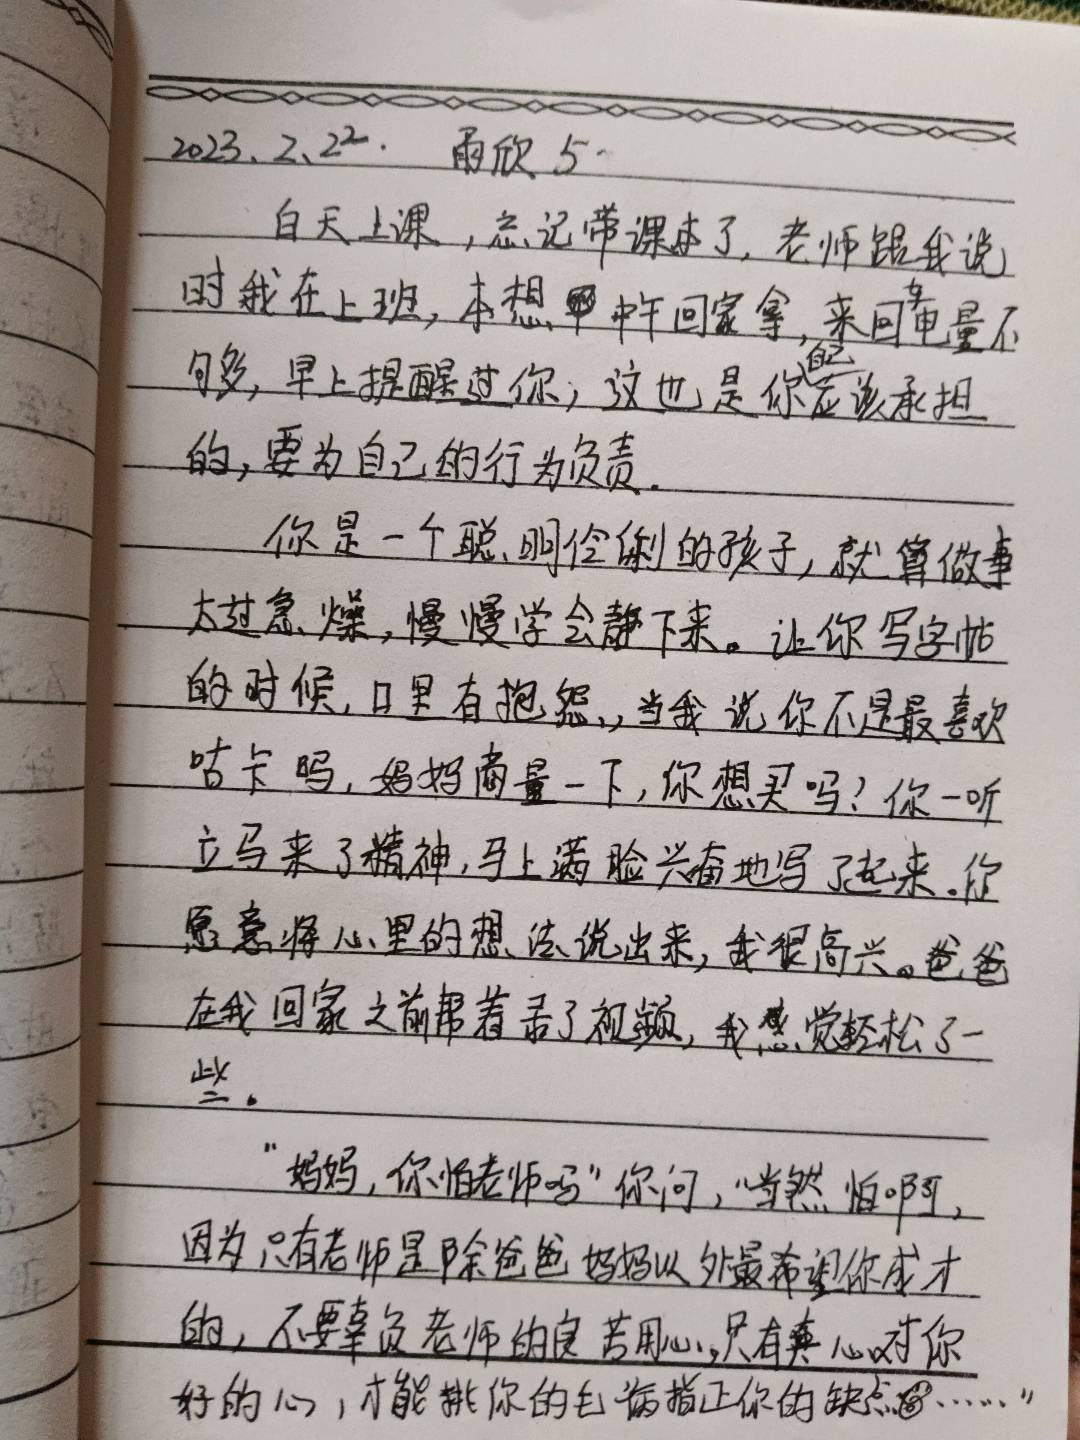 2023.2.22. 雨欣 5.
白天上课,忘记带课本了,老师跟我说
时我在上班,本想中午回家拿,来回车电量不
够多,早上提醒过你,这也是你自己应该承担
的,要为自己的行为负责.
你是一个聪明伶俐的孩子,就算做事
太过急燥,慢慢学会静下来。让你写字帖
的时候,口里有抱怨,当我说你不是最喜欢
咕卡吗,妈妈商量一下,你想买吗?你一听
立马来了精神,马上满脸兴奋地写了起来.你
愿意将心里的想法说出来,我很高兴。爸爸
在我回家之前帮着录了视频,我感觉轻松了一
些。
"妈妈,你怕老师吗"你问,"当然怕啊,
因为只有老师是除爸爸妈妈以外最希望你成才
的,不要辜负老师的良苦用心,只有真心对你
好的心,才能挑你的毛病指正你的缺点……"